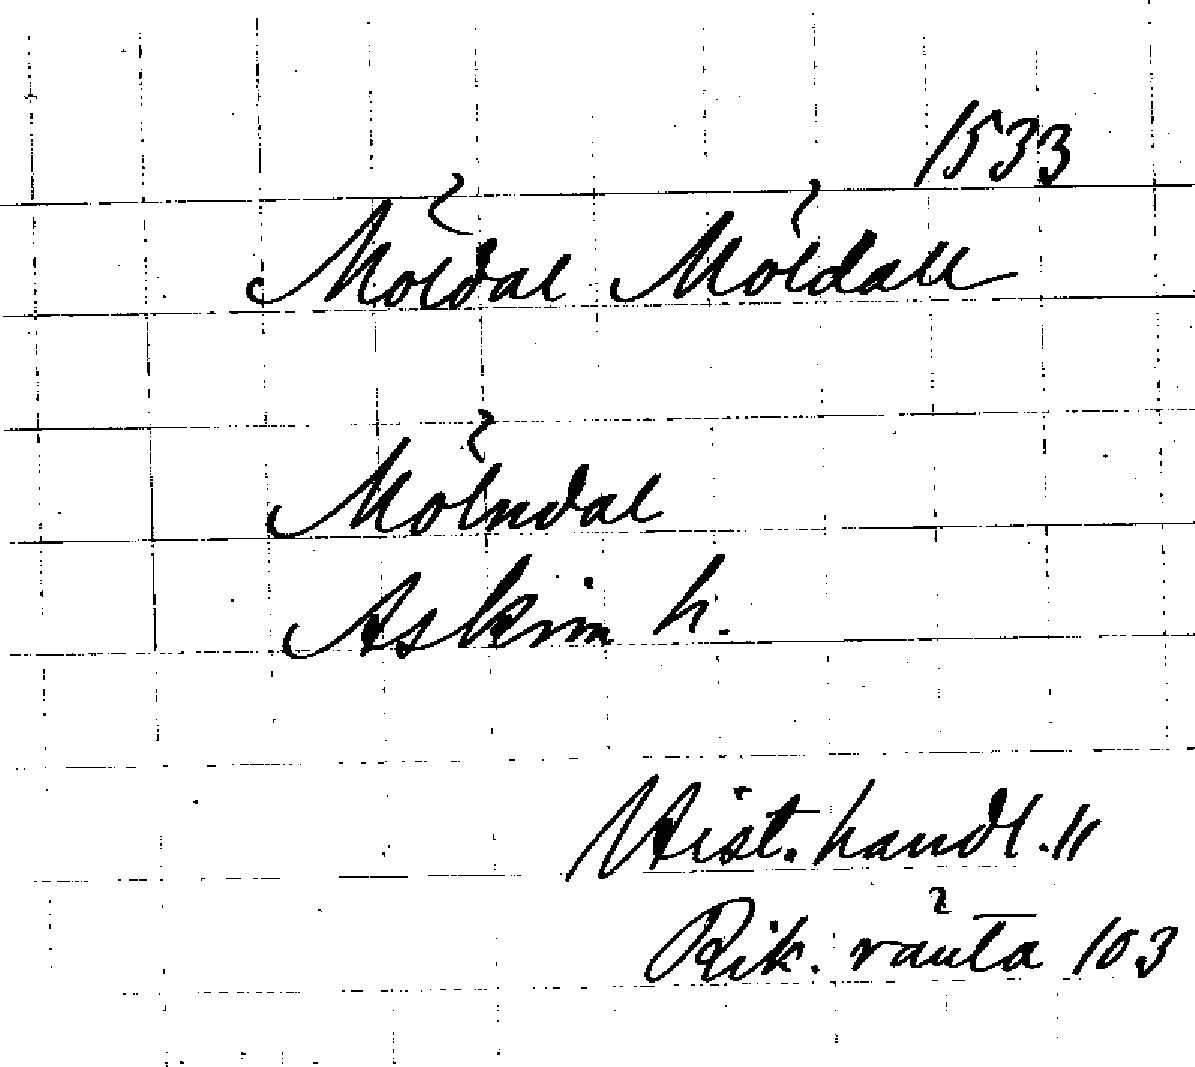 1533
Möldal Möldall
Mölndal
Askim h.
Hist. handl. 11
Rik. ränta 103